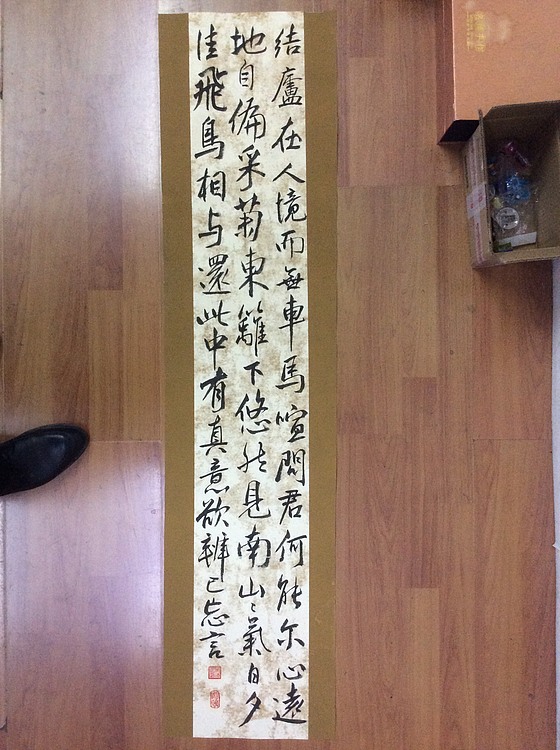 結廬在人境而無車馬喧問君何能尔心遠
地自偏采菊東籬下悠然見南山〻氣日夕
佳飛鳥相与還此中有真意欲辨已忘言